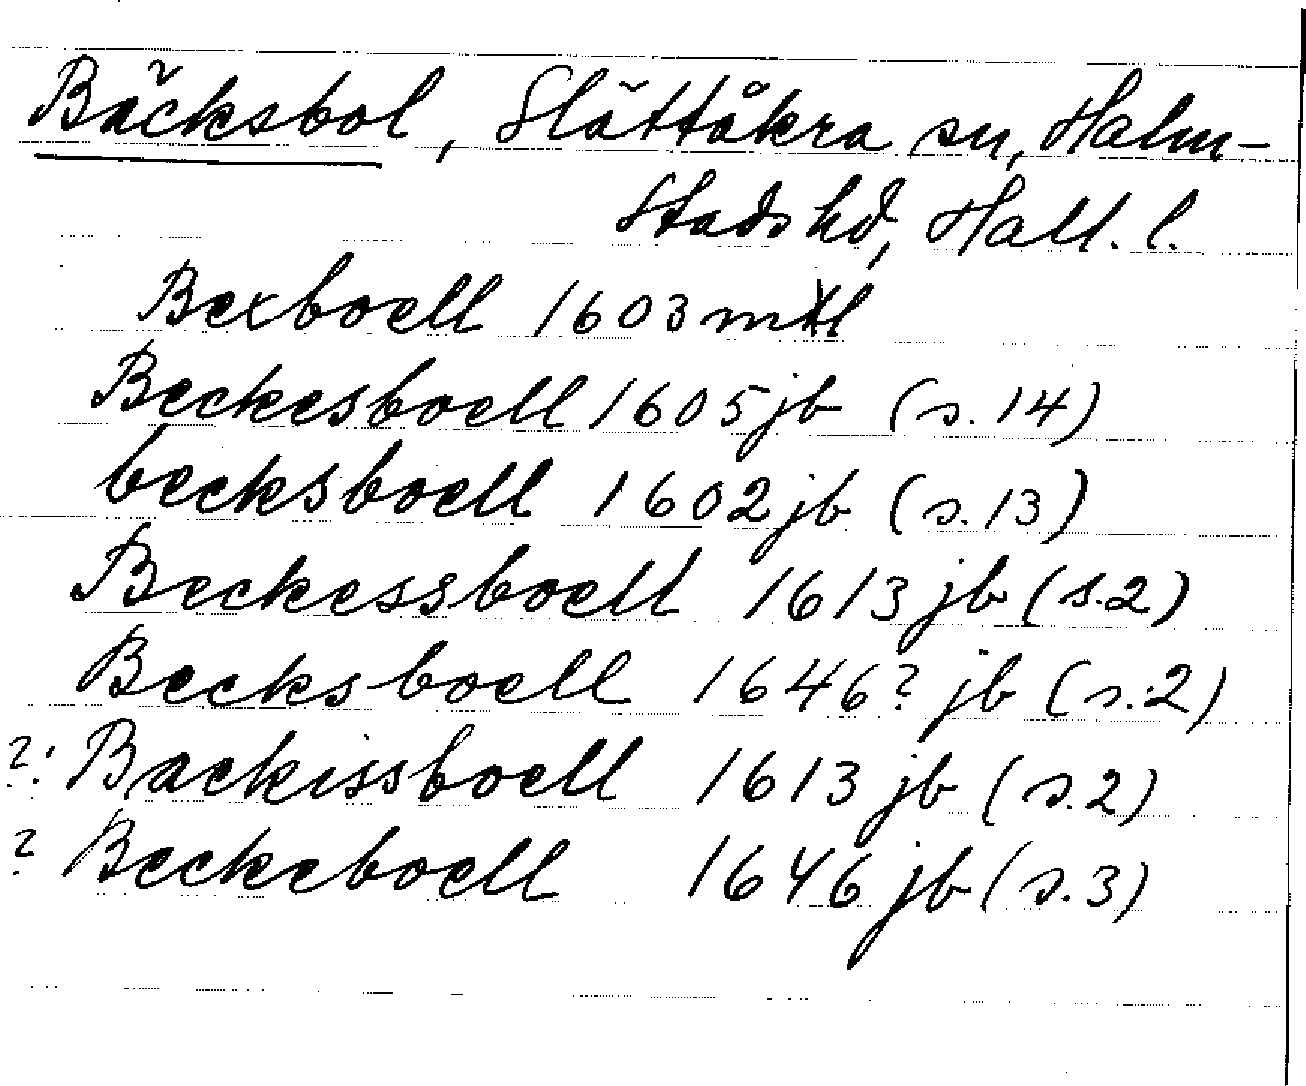 Bäcksbol, Slättåkra sn, Halm-
stads hd, Hall. l.
Bexboell 1603 mtl
Beckesboell 1605 jb (s. 14)
becksboell 1602 jb (s. 13)
Beckessboell 1613 jb (s. 2)
Becksboell 1646? jb (s. 2)
?: Backissboell 1613 jb (s. 2)
? Beckeboell 1646 jb (s. 3)